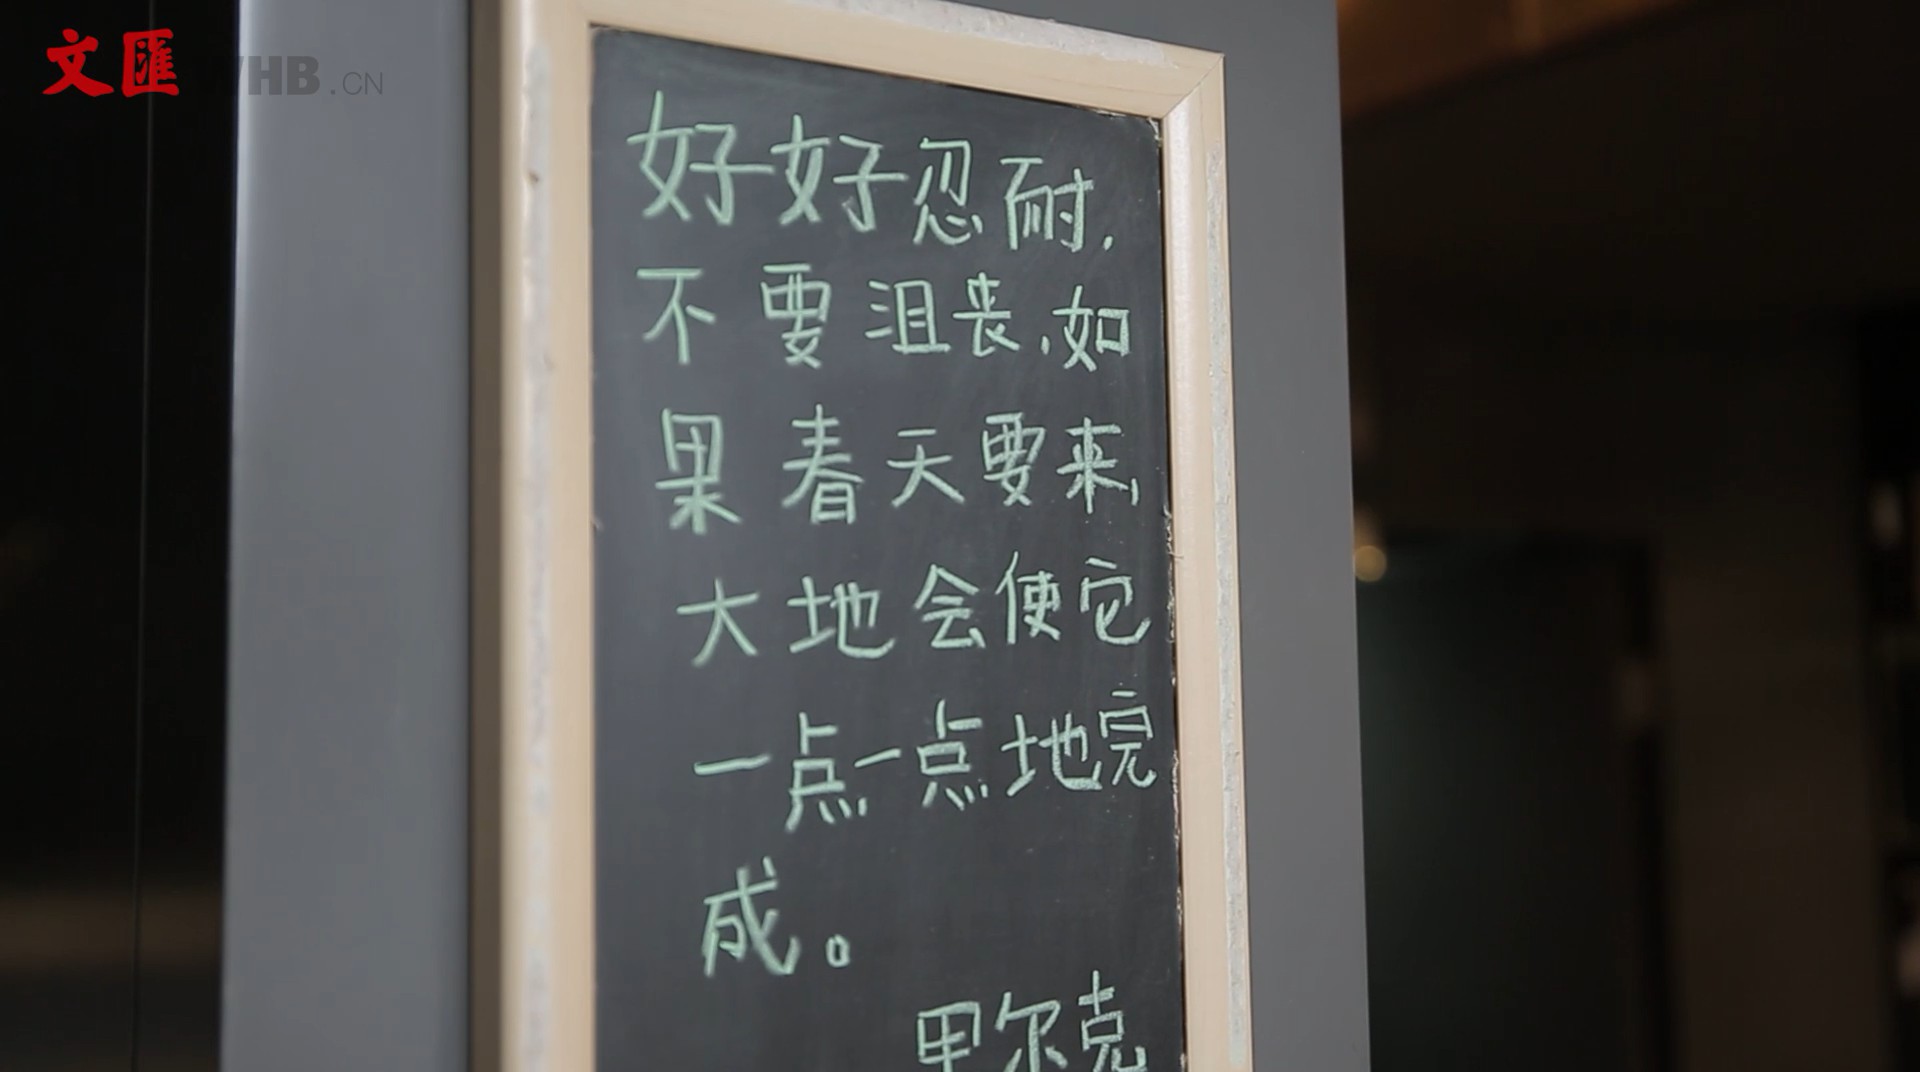 文匯 WHB.CN
好好忍耐,
不要沮丧,如
果春天要来,
大地会使它
一点一点地完
成。
里尔克